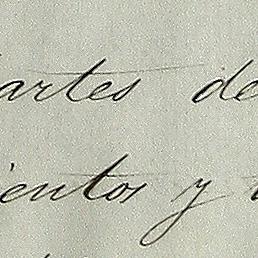 artes de
ientos y